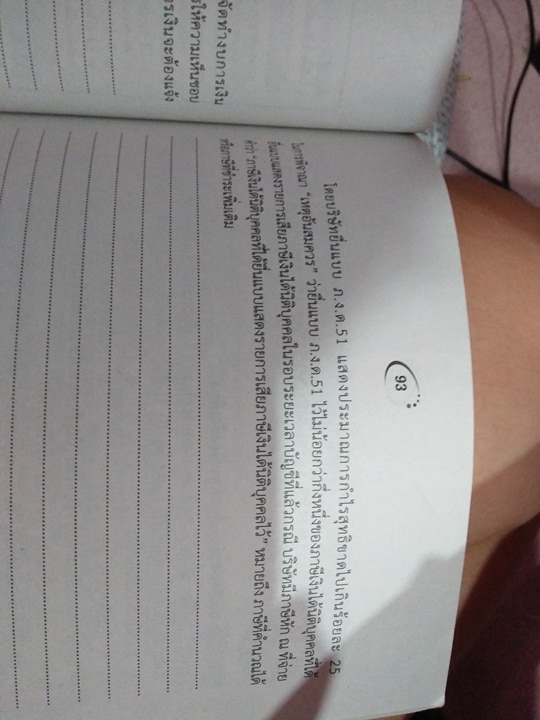 93
โดยบริษัทยื่นแบบ ภ.ง.ด.51 แสดงประมาณการกำไรสุทธิขาดไปเกินร้อยละ 25
ในการพิจารณา "เหตุอันสมควร" ว่ายื่นแบบ ภ.ง.ด.51 ไว้ไม่น้อยกว่ากึ่งหนึ่งของภาษีเงินได้นิติบุคคลที่ได้
ยื่นแบบแสดงรายการเสียภาษีเงินได้นิติบุคคลในรอบระยะเวลาบัญชีที่แล้วกรณี บริษัทมีภาษีหัก ณ ที่จ่าย
คำว่า "ภาษีเงินได้นิติบุคคลที่ได้ยื่นแบบแสดงรายการเสียภาษีเงินได้นิติบุคคลไว้" หมายถึง ภาษีที่คำนวณได้
หรือภาษีที่ชำระเพิ่มเติม
จัดทำงบการเงิน
ให้ความเห็นชอบ
การเงินจะต้องแจ้ง